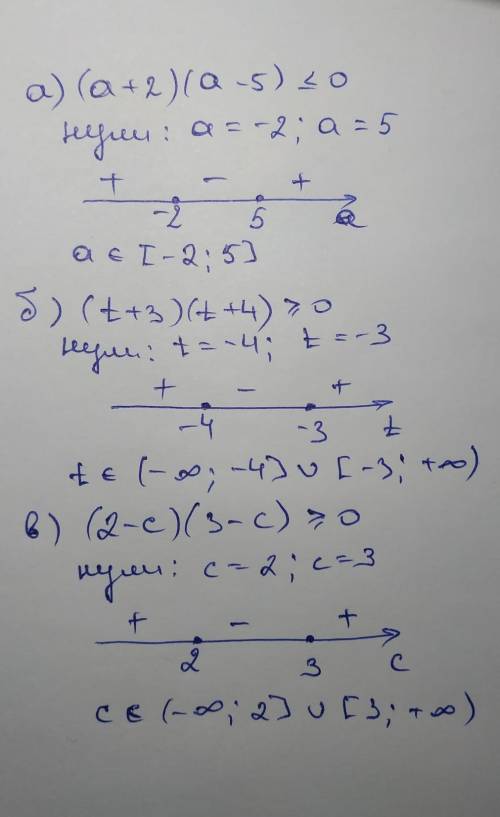 а) (a+2)(a-5) ≤ 0
нули: a = -2; a = 5
+ - +
-2 5 a
a ∈ [-2; 5]
б) (t+3)(t+4) ≥ 0
нули: t = -4; t = -3
+ - +
-4 -3 t
t ∈ (-∞; -4] ∪ [-3; +∞)
в) (2-c)(3-c) ≥ 0
нули: c = 2; c = 3
+ - +
2 3 c
c ∈ (-∞; 2] ∪ [3; +∞)